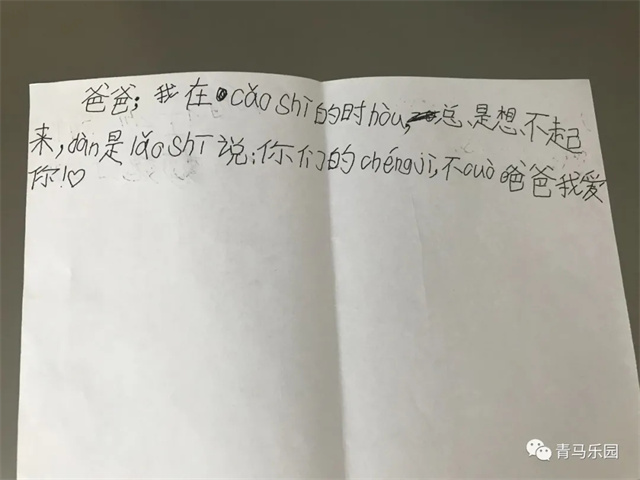 爸爸；我在cǎoshī的时hòu，总是想不起
来，dàn是lǎoshī说：你们的chéngjì，不cuò爸爸我爱
你！♡
青马乐园